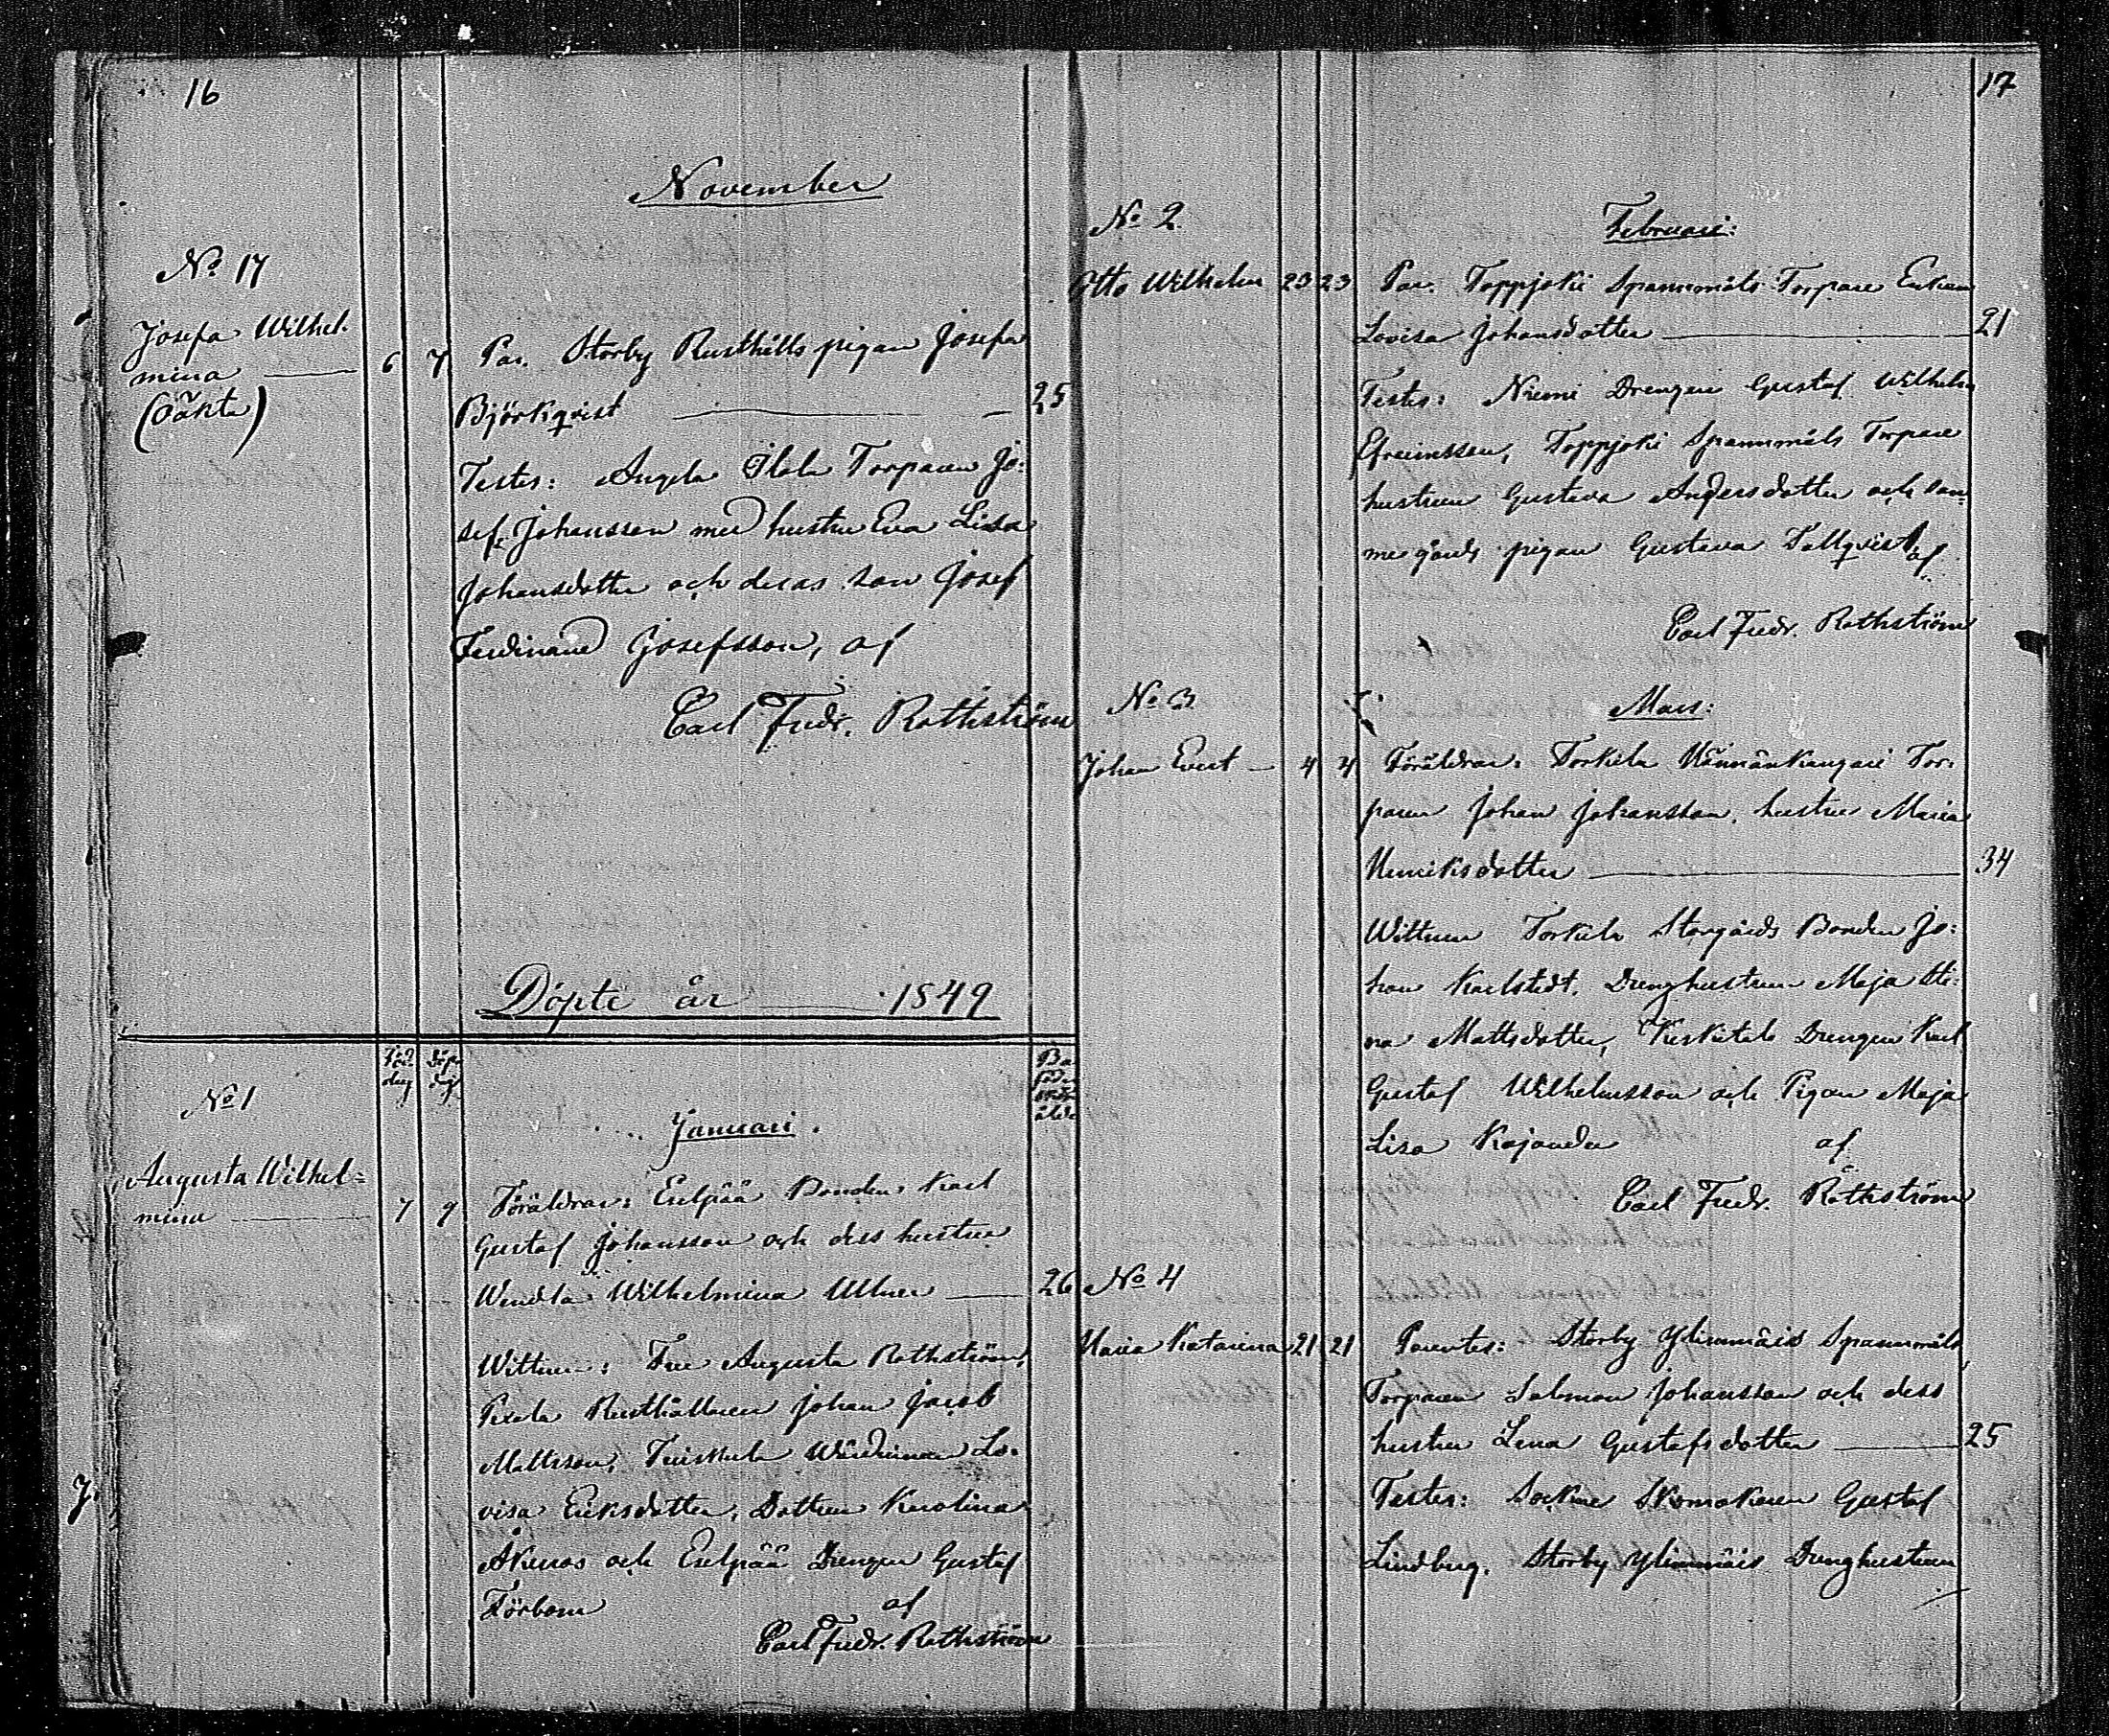 16
November
No 17
Josefa Wilhel-
mina
(oäkta)
6 7
Par. Storby Rusthålls pigan Josefa
Björkqvist 25
Testes: Torparen Jo:
sef Johansson med hustru Eva Lisa
Johansdotter och deras son Josef
Ferdinand Josefsson, af
Carl Fredr. Rothström
Döpte år 1849
Föd. dag
Döp. dag
No 1
Januari.
Augusta Wilhel=
mina 7 9
Föräldrar: Eselpää Bonden Karl
Gustaf Johansson och dess hustru
Wendla Wilhelmina Ullner 26
Wittnen: Fru Augusta Rothström,
Rusthållaren Johan Jacob
Mattsson, Wärdinnan Lo-
visa Eriksdotter, Dottren Karolina
och Eselpää Drengen Gustaf
Törbom af
Carl Fredr. Rothström
17
No 2
Februari:
Otto Wilhelm 23 23
Par. Toppjoki Spannmåls Torpare Enkan
Lovisa Johansdotter 21
Testes: Niemi Drengen Gustaf Wilhelm
Efraimsson, Toppjoki Spannmåls Torpare
hustrun Gustava Andersdotter och sam-
me gårds pigan Gustava Tallqvist af
Carl Fredr. Rothström
No 3
Mars:
Johan Evert 4 4
Föräldrar: Torkila Männänkangari Tor-
paren Johan Johansson, hustru Maria
Henriksdotter 34
Wittnen Torkila Storgårds Bonden Jo:
han Karlstedt, Drenghustrun Maja Sti:
na Mattsdotter, Keskitalo Drengen Karl
Gustaf Wilhelmsson och Pigan Maja
Lisa Kajander af
Carl Fredr. Rothström
No 4
Maria Katarina 21 21
Parentes: Storby Ylismäis Spannmåls
Torparen Salomon Johansson och dess
hustru Lena Gustafsdotter 25
Testes: Sockne Skomakaren Gustaf
Lindberg, Storby Ylismäis Drenghustrun